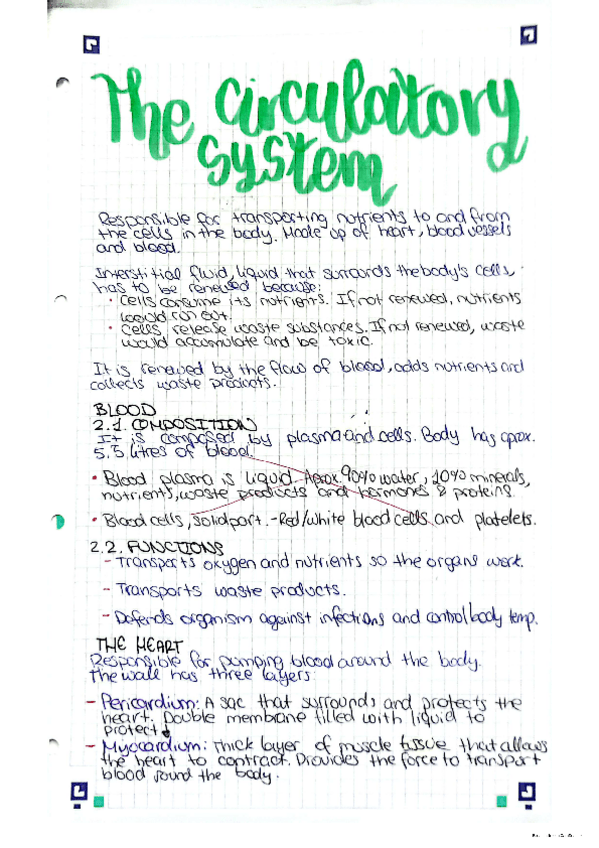 The circulatory
system
Responsible for transporting nutrients to and from
the cells in the body. Made up of heart, blood vessels
and blood.
Interstitial fluid, liquid that surrounds the body's cells,
has to be renewed because:
• Cells consume its nutrients. If not renewed, nutrients
would run out.
• Cells release waste substances. If not renewed, waste
would accumulate and be toxic.
It is renewed by the flow of blood, adds nutrients and
collects waste products.
BLOOD
2.1. COMPOSITION
It is composed by plasma and cells. Body has aprox.
5.5 litres of blood.
• Blood plasma is liquid. Aprox. 90% water, 10% minerals,
nutrients, waste products and hormones & proteins.
• Blood cells, solid part. - Red/white blood cells and platelets.
2.2. FUNCTIONS
- Transports oxygen and nutrients so the organs work.
- Transports waste products.
- Defends organism against infections and control body temp.
THE HEART
Responsible for pumping blood around the body.
The wall has three layers:
- Pericardium: A sac that surrounds and protects the
heart. Double membrane filled with liquid to
protect
- Myocardium: Thick layer of muscle tissue that allows
the heart to contract. Provides the force to transport
blood round the body.